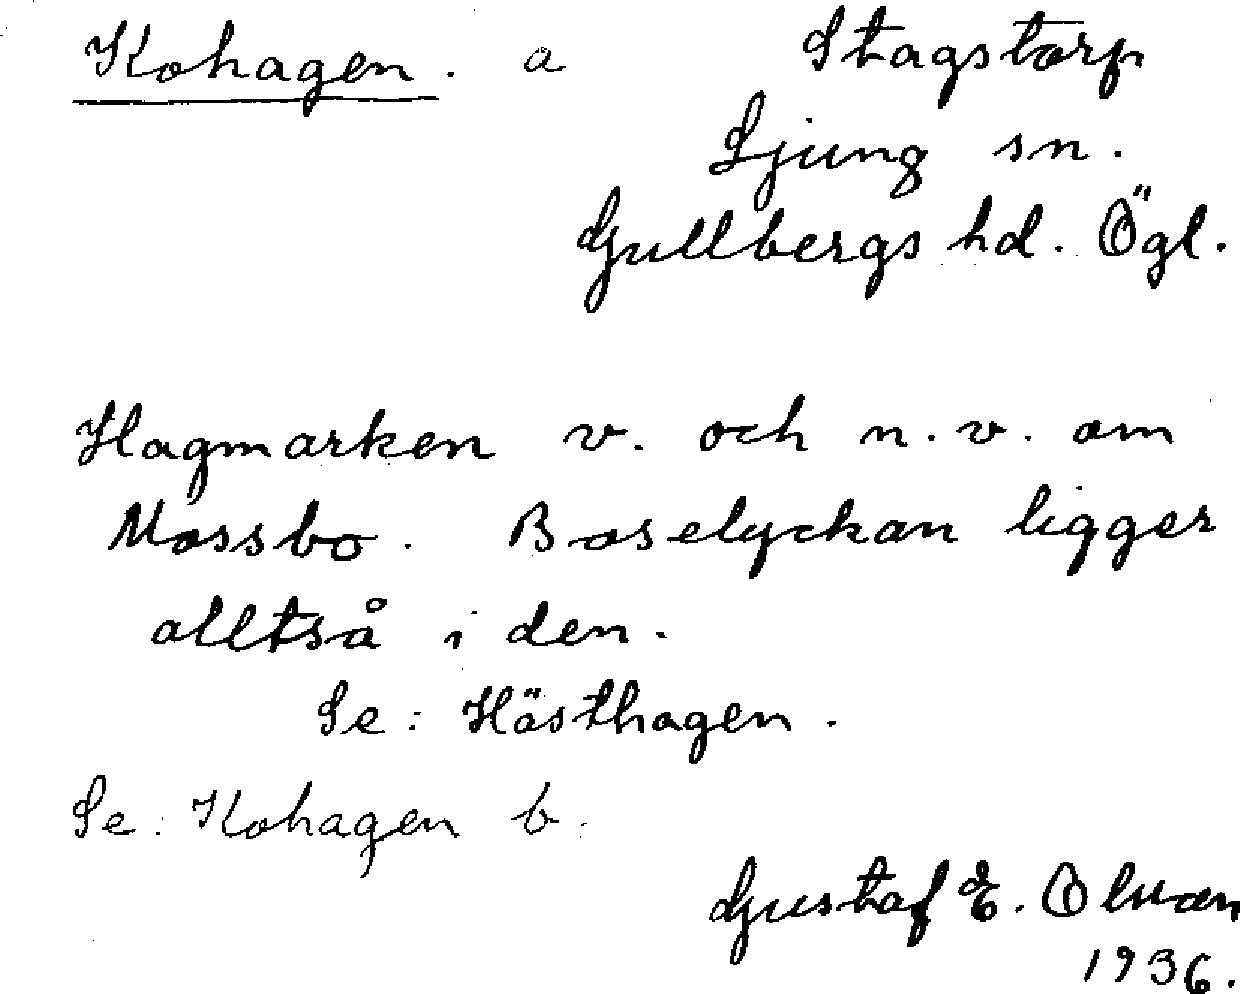 Kohagen. a Stagstorp
Ljung sn.
Gullbergs hd. Ögl.
Hagmarken v. och n.v. om
Mossbo. Boselyckan ligger
alltså i den.
Se: Hästhagen.
Se: Kohagen b.
Gustaf E.
1936.